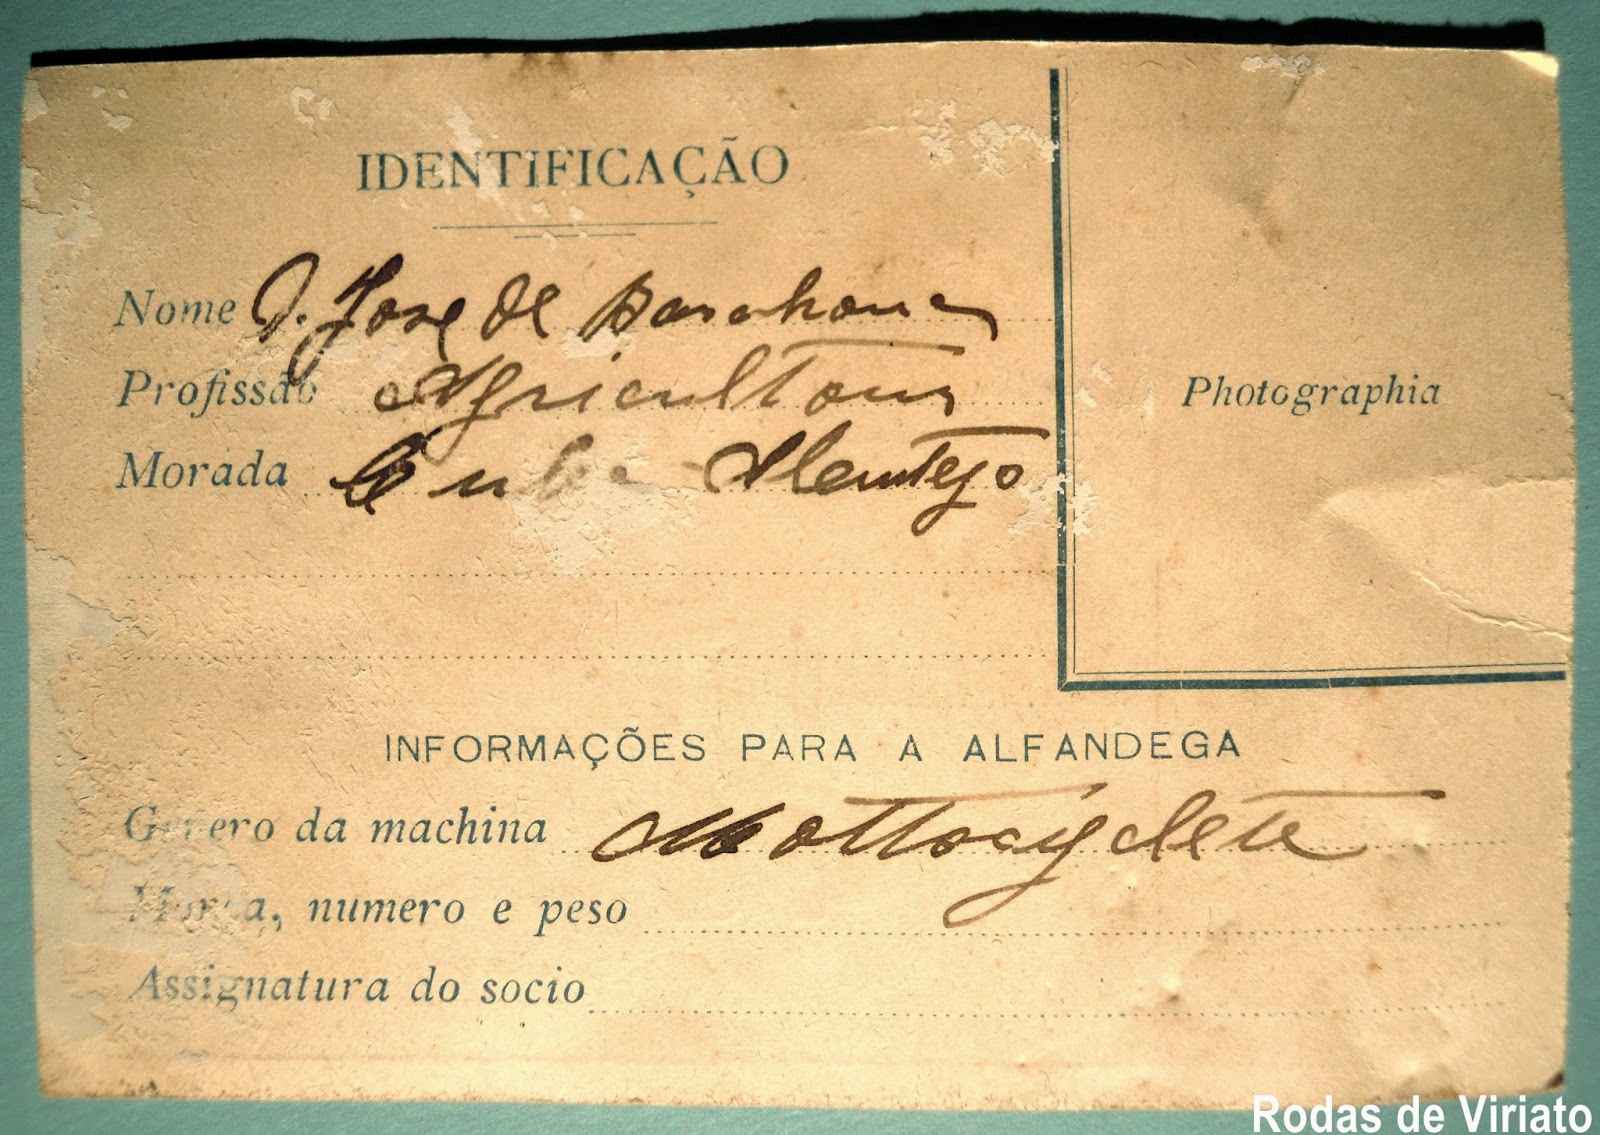 IDENTIFICAÇÃO
Nome D. José de Barahona
Profissão Agricultour
Morada Cuba Alemtejo
Photographia
INFORMAÇÕES PARA A ALFANDEGA
Genero da machina Mottocyclete
Marca, numero e peso
Assignatura do socio
Rodas de Viriato